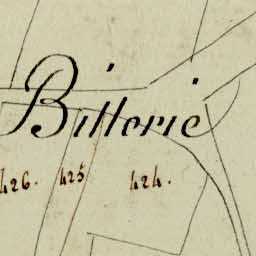 Bitterie
426. 425 424.